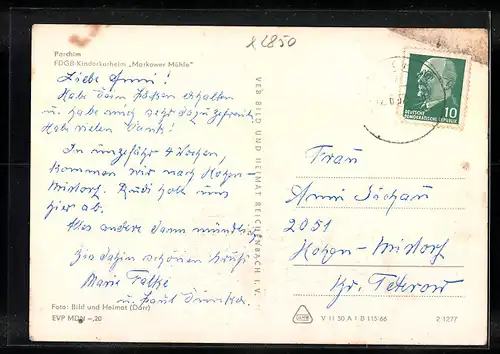 x L850
Parchim
FDGB-Kinderkurheim „Markower Mühle"
Liebe Anni!
Habe dein Päckchen erhalten
u. habe mich sehr dazu gefreut.
Hab vielen Dank!
In ungefähr 4 Wochen,
kommen wir nach Hohen-
Mistorf. Rudi holt uns
hier ab.
Alles andere dann mündlich
Bis dahin schönen Gruß
Marie
u.
Foto: Bild und Heimat (Darr)
EVP MDN –,20
VEB BILD UND HEIMAT REICHENBACH I. V.
DEUTSCHE
DEMOKRATISCHE REPUBLIK
10
Frau
Anni Sichau
2051
Hohen-Mistorf
Kr. Teterow
V 11 50 A 1 B 115/66
2 1277